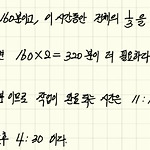 160분이고, 이 시간동안 전체의 1/3을
면 160×2=320분이 더 필요하다
이므로 작업이 완료 되는 시간은 11:
후 4:30 이다.